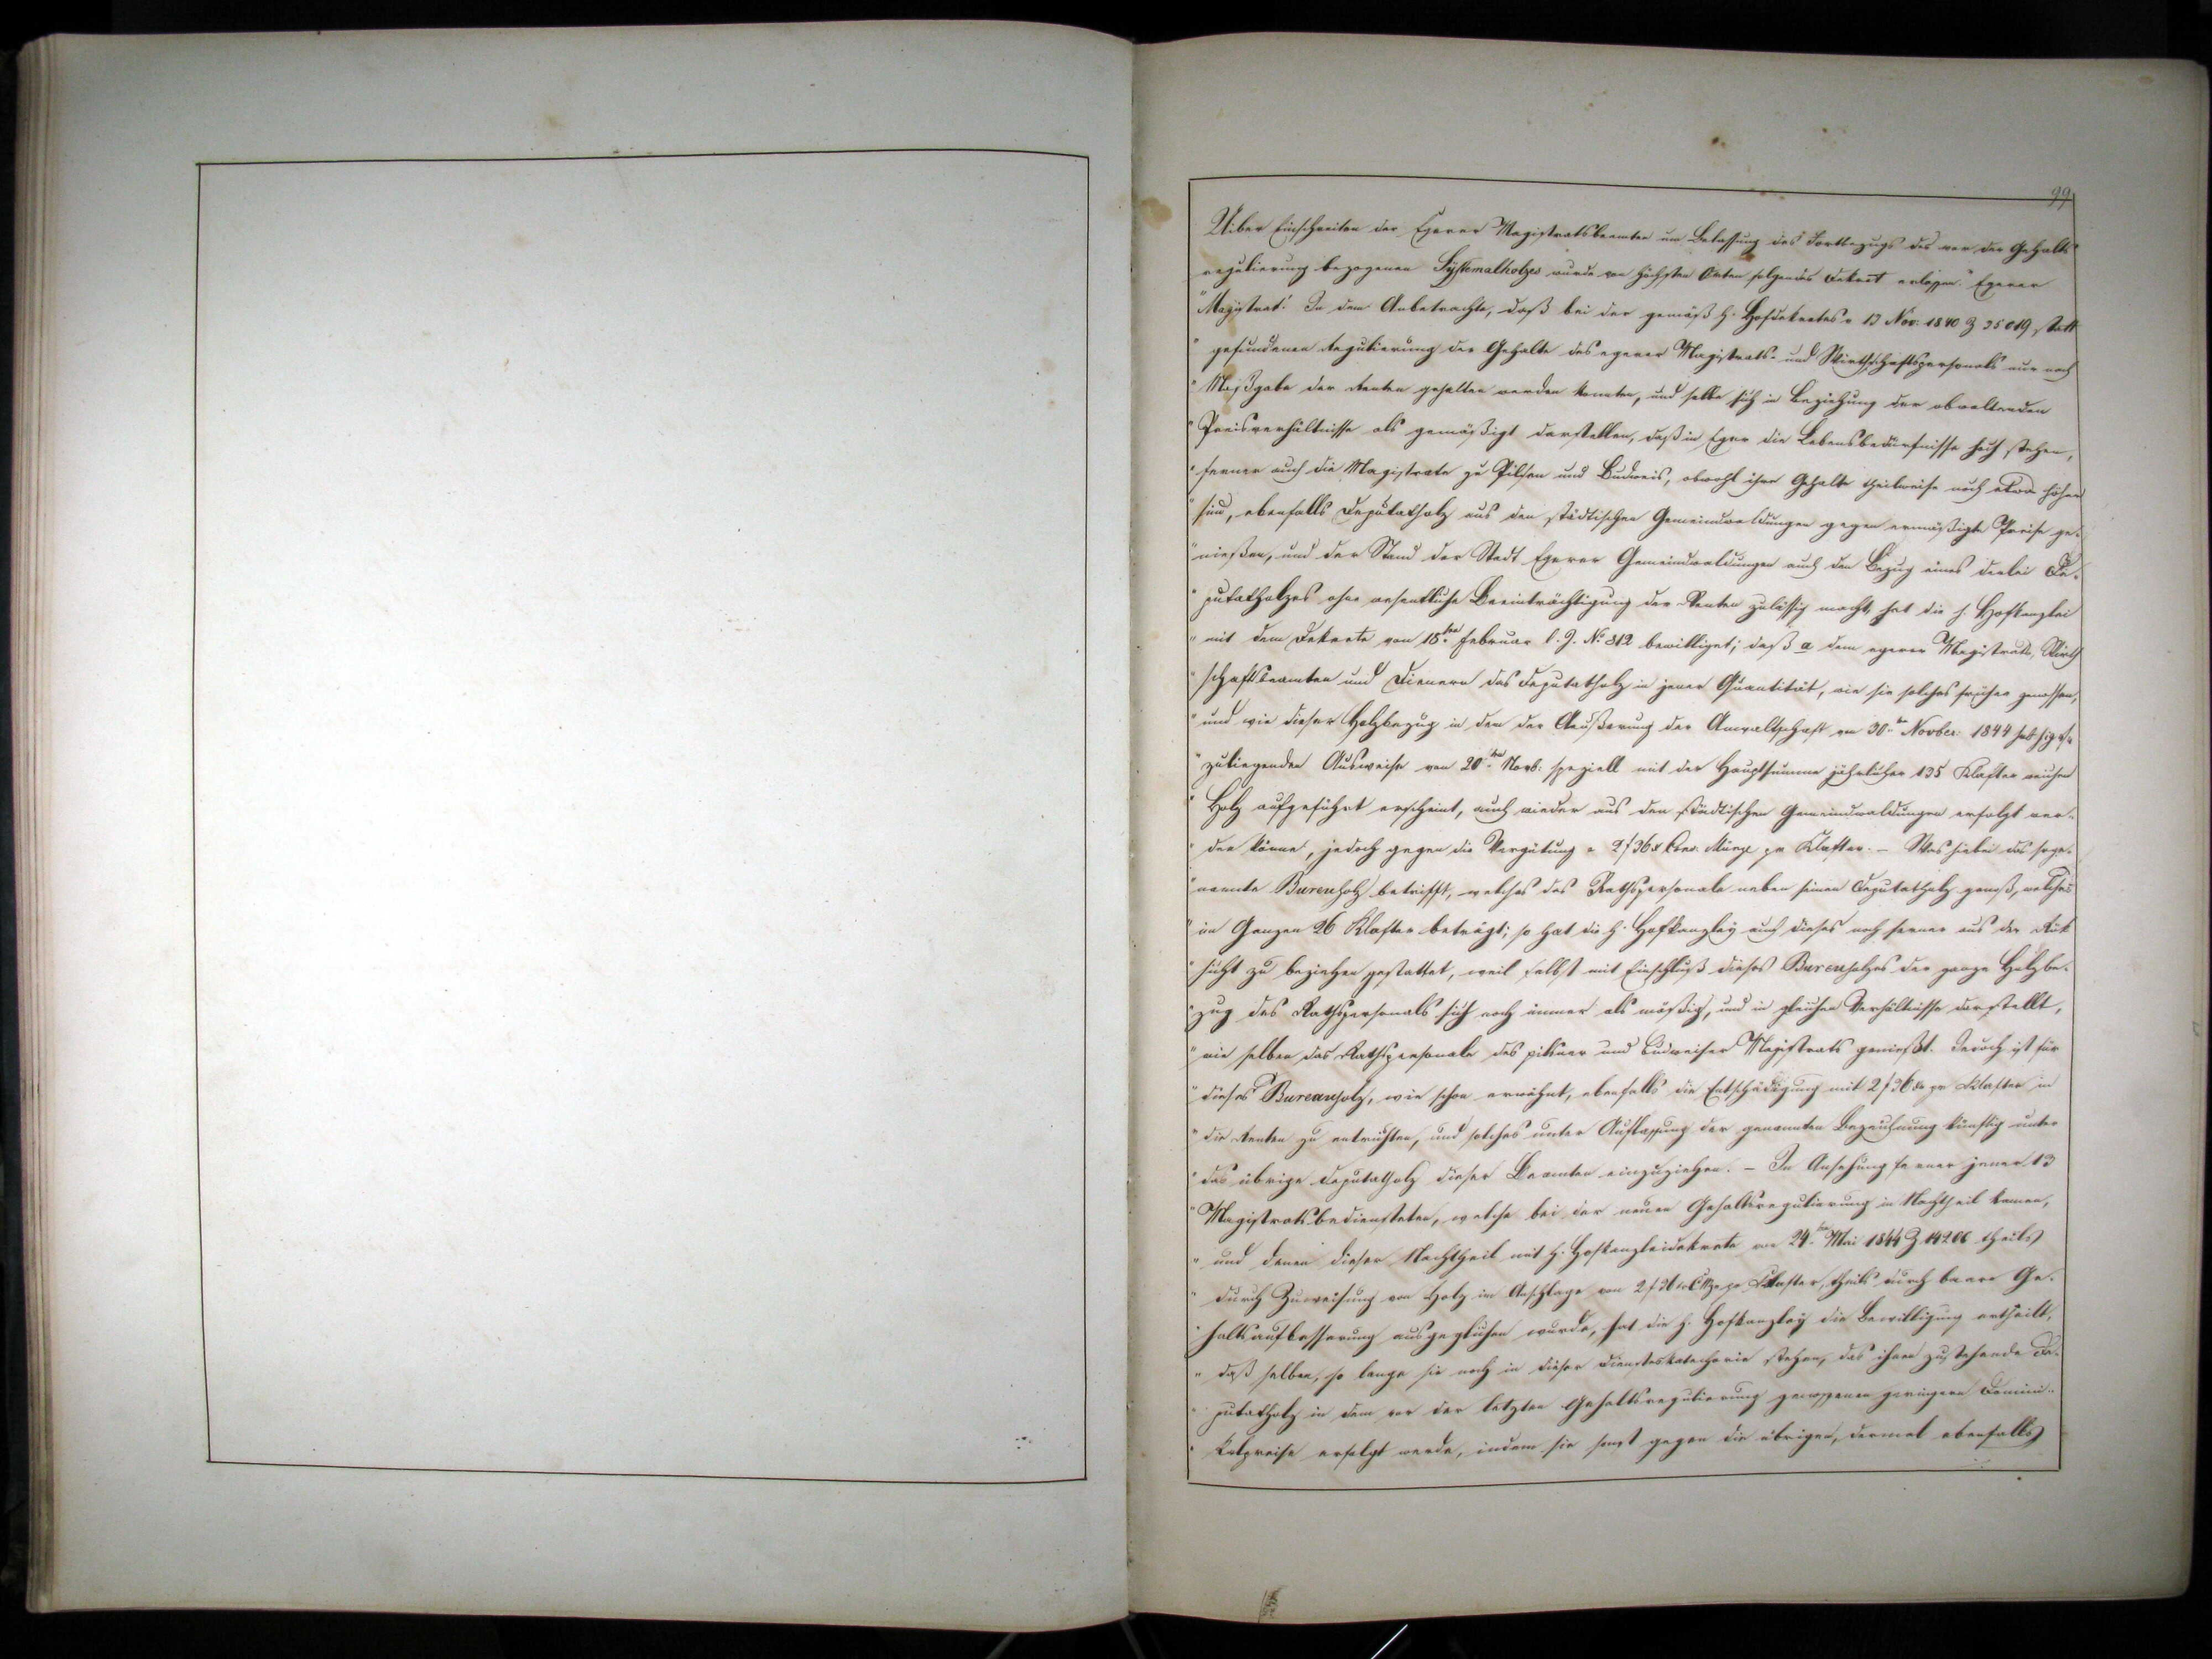 99
Uiber Einschreiten der Egerer Magistratsbeamten um Belassung des Fortbezugs des vor der Gehalts
regulierung bezogenen Systemalholzes wurde von höchsten Orten folgendes Dekret erlassen: "Egerer
"Magistrat! In dem Anbetrachte, daß bei der gemäß h. Hofdekretes v 13 Nov: 1840 Z 35019 statt
"gefundenen Regulierung der Gehalte des egerer Magistrats- und Wirthschaftspersonals nur nach
"Maßgabe der Renten gehalten werden konnten, und selbe sich in Beziehung der obwaltenden
"Preisverhältnisse als gemäßigt darstellen, daß in Eger die Lebensbedürfnisse hoch stehen,
"ferner auch die Magistrate zu Pilsen und Budweis, obwohl ihre Gehalte theilweise noch etwas höher
"sind, ebenfalls Deputatholz aus den städtischen Gemeindwaldungen gegen ermäßigte Preise ge-
"nießen, und der Stand der Stadt Egerer Gemeindwaldungen auch den Bezug eines derlei De-
"putatholzes ohne wesentliche Beeinträchtigung der Renten zulässig macht, hat die h. Hofkanzlei
"mit dem Dekrete vom 15ten Februar l. J. No 812 bewilliget; daß a dem egerer Magistrats, Wirth
"schaftsbeamten und Dienern das Deputatholz in jener Quantität, wie sie solches früher genossen,
"und wie dieser Holzbezug in dem der Aeußerung der Anwaltschaft vom 30ten Novber: 1844
"zuliegenden Ausweise vom 20ten Novb. speziell mit der Hauptsumme jährlicher 135 Klafter weichen
"Holz aufgeführt erscheint, auch wieder aus den städtischen Gemeindwaldungen erfolgt wer-
"den könne, jedoch gegen die Vergütung v 2 f 36 x Conv. Münze pr Klafter. – Was hiebei das soge-
"nannte Bureauholz betrifft, welches das Rathspersonale neben seinem Deputatholz genoß, welches
"im Ganzen 26 Klafter beträgt; so hat die h. Hofkanzley auch dieses noch ferner aus der Rük
"sicht zu beziehen gestattet, weil selbst mit Einschluß dieses Bureauholzes der ganze Holzbe-
"zug des Rathspersonals sich noch immer als mäßig, und in gleichem Verhältnisse darstellt,
"wie selben das Rathspersonale des pilsner und budweiser Magistrats genießt. Jedoch ist für
"dieses Bureauholz, wie schon erwähnt, ebenfalls die Entschädigung mit 2 f 36 x pr Klafter in
"die Renten zu entrichten, und solches unter Auflassung der genannten Bezeichnung künftig unter
"das übrige Deputatholz dieser Beamten einzuziehen. – In Ansehung ferner jener 13
"Magistratsbediensteten, welche bei der neuen Gehaltsregulierung in Nachtheil kamen,
"und denen dieser Nachtheil mit h. Hofkanzleidekrete vom 24ten Mai 1844 Z 14206 theils
"durch Zuweisung von Holz im Anschlage von 2 f 36 x C Mze pr Klafter, theils durch baare Ge-
"haltsaufbesserung ausgeglichen wurde, hat die h. Hofkanzley die Bewilligung ertheilt,
"daß selben, so lange sie noch in dieser Diensteskathegorie stehen, das ihnen zustehende De-
"putatholz in dem vor der letzten Gehaltsregulierung genossenen geringern Domini-
"kalpreise erfolgt werde, indem sie sonst gegen die übrigen, dermal ebenfalls